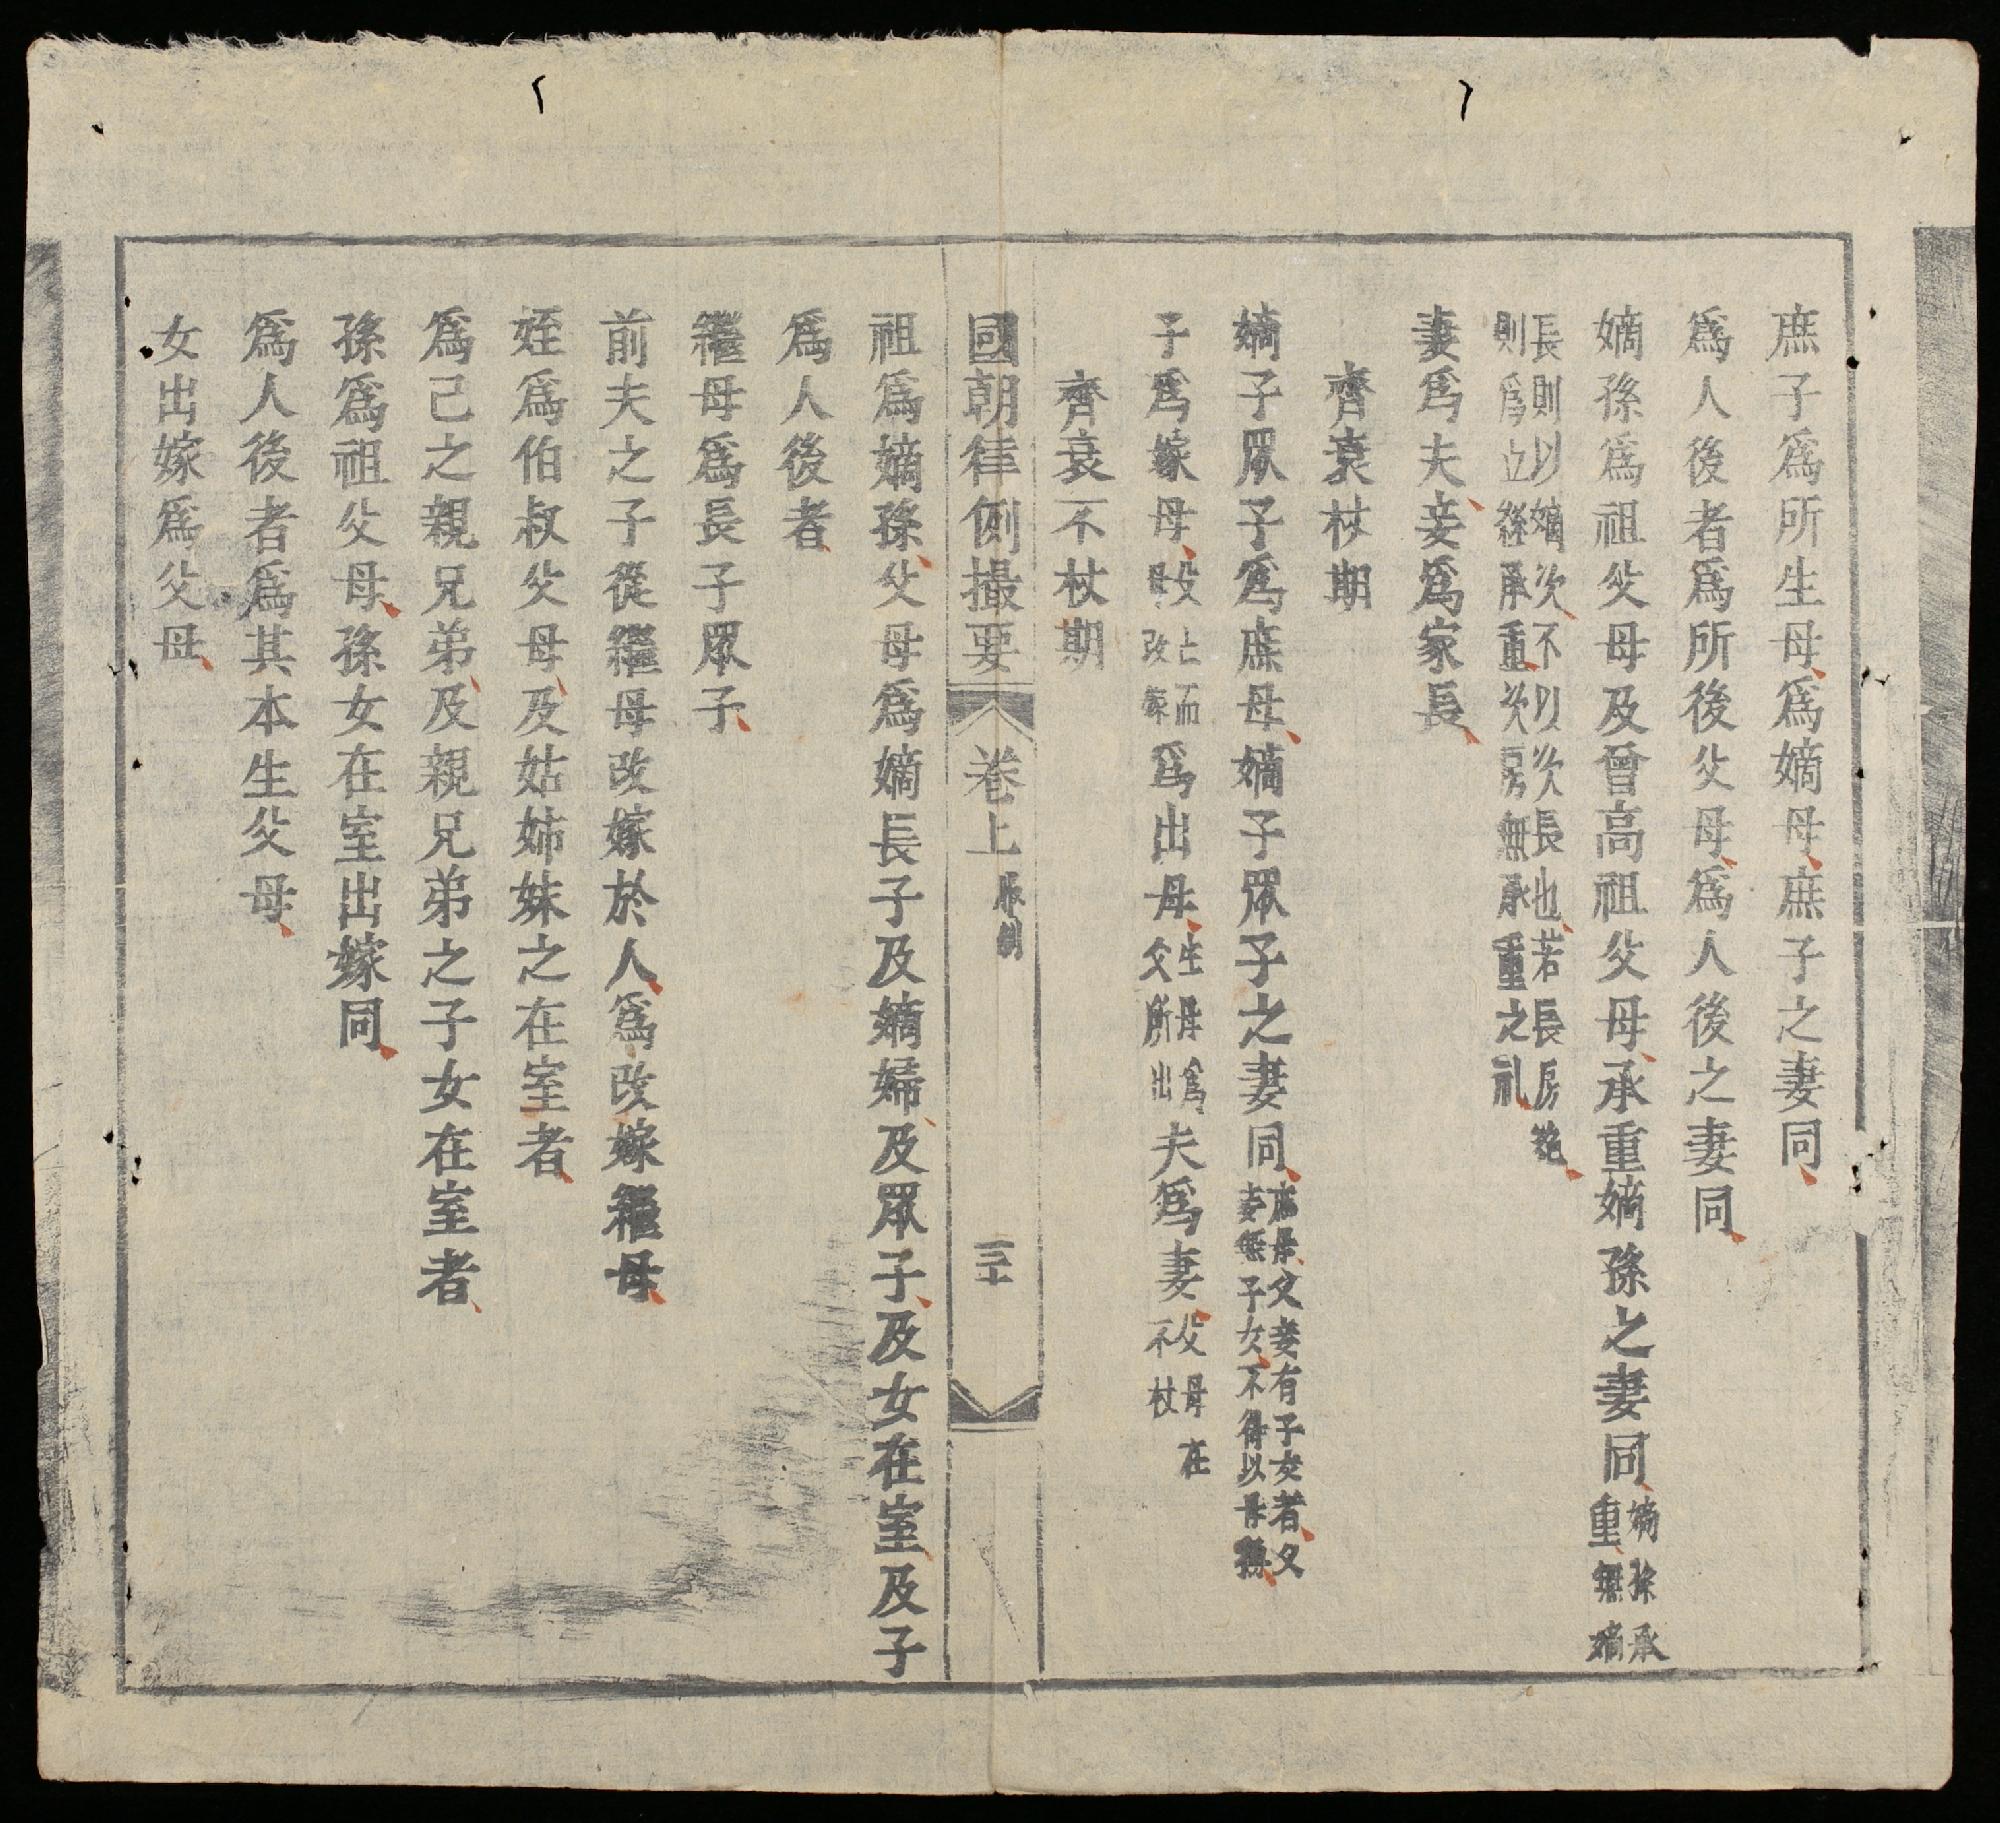 庶子爲所生母爲嫡母庶子之妻同
爲人後者爲所後父母爲人後之妻同
嫡孫爲祖父母及曾高祖父母承重嫡孫之妻同嫡孫承重無嫡
長則以嫡次不以次長也若長房絶
則爲立繼承重次房無承重之礼
妻爲夫妾爲家長
齊衰杖期
嫡子眾子爲庶母嫡子眾子之妻同庶母父妾有子女者父妾無子女不得以母稱
子爲嫁母父亡而母改嫁爲出母生母爲父所出夫爲妻父母在不杖
齊衰不杖期
國朝律例撮要 卷上 服制 三十
祖爲嫡孫父母爲嫡長子及嫡婦及眾子及女在室及子
爲人後者
繼母爲長子眾子
前夫之子從繼母改嫁於人爲改嫁繼母
姪爲伯叔父母及姑姊妹之在室者
爲己之親兄弟及親兄弟之子女在室者
孫爲祖父母孫女在室出嫁同
爲人後者爲其本生父母
女出嫁爲父母